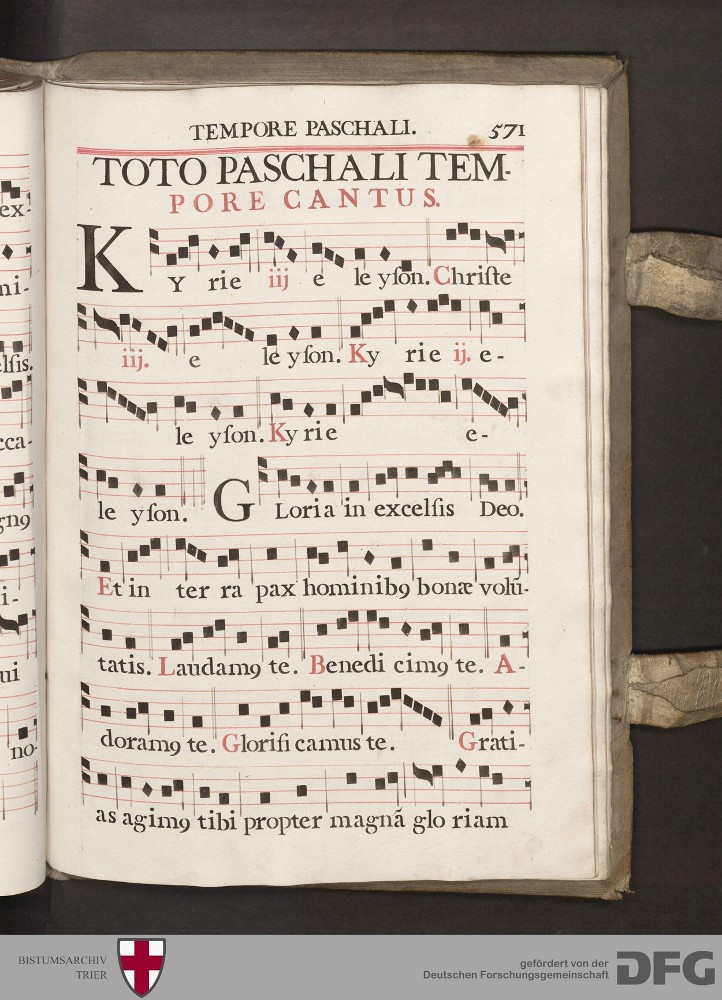 ex-
mi-
elſis.
cca-
gn9
i-
ui
no-
TEMPORE PASCHALI. 571
TOTO PASCHALI TEM-
PORE CANTUS.
KY rie iij e le yſon. Chriſte
iij. e le yſon. Ky rie ij. e-
le yſon. Ky rie e-
le yſon. GLoria in excelſis Deo.
Et in ter ra pax hominib9 bonæ volū-
tatis. Laudam9 te. Benedi cim9 te. A-
doram9 te. Glorifi camus te. Grati-
as agim9 tibi propter magnã glo riam
BISTUMSARCHIV
TRIER
gefördert von der
Deutschen Forschungsgemeinschaft
DFG